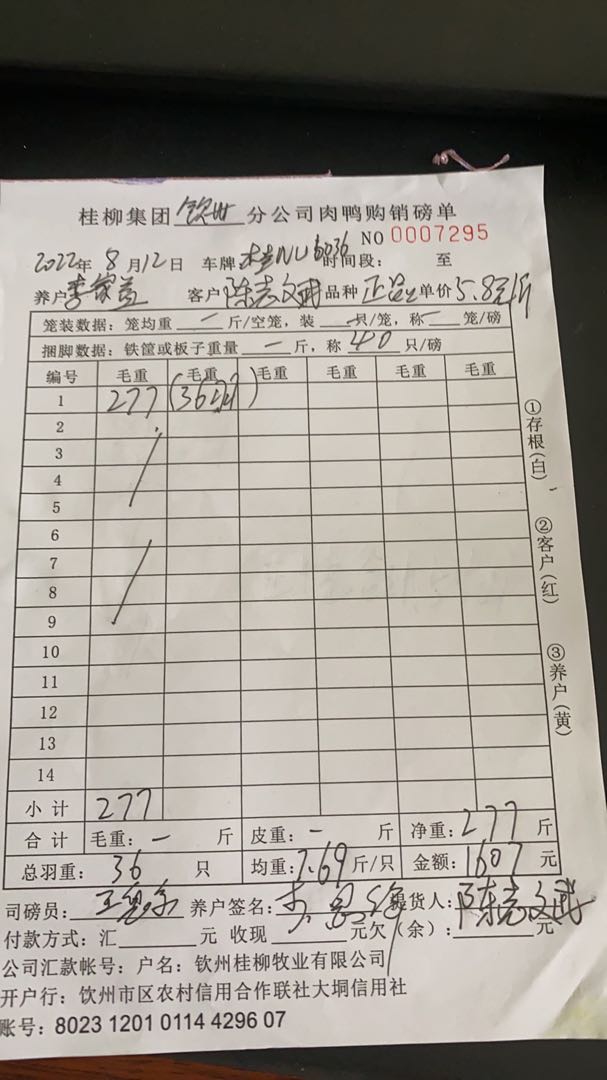 桂柳集团钦州分公司肉鸭购销磅单
NO 0007295
2022年8月12日 车牌 NU6036 时间段: 至
养户 李家益 客户 陈志文武 品种 正品 单价 5.8元/斤
笼装数据：笼均重 — 斤/空笼，装 — 只/笼，称 — 笼/磅
捆脚数据：铁筐或板子重量 — 斤，称 40 只/磅
编号 毛重 毛重 毛重 毛重 毛重 毛重
1 277 (36只)
2
3
4
5
6
7
8
9
10
11
12
13
14
小计 277
合计 毛重: — 斤 皮重: — 斤 净重: 277 斤
总羽重: 36 只 均重: 7.69 斤/只 金额: 1607 元
司磅员: 养户签名: 提货人: 陈志文武
付款方式: 汇 元 收现 元欠（余）: 元
公司汇款帐号: 户名: 钦州桂柳牧业有限公司
开户行: 钦州市区农村信用合作联社大垌信用社
账号: 8023 1201 0114 4296 07
①存根(白)
②客户(红)
③养户(黄)